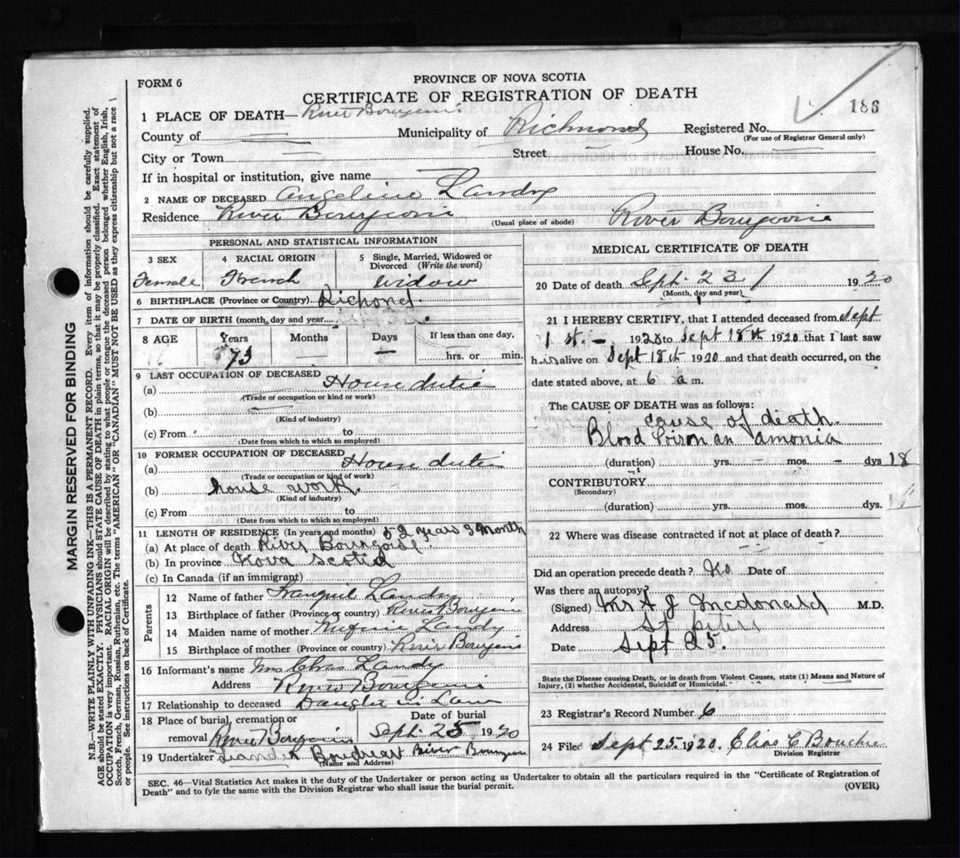 FORM 6
PROVINCE OF NOVA SCOTIA
CERTIFICATE OF REGISTRATION OF DEATH
186
1 PLACE OF DEATH— River
County of
Municipality of Richmond
Registered No.
(For use of Registrar General only)
City or Town
Street
House No.
If in hospital or institution, give name
2 NAME OF DECEASED Angeline Landry
Residence River
(Usual place of abode)
River
PERSONAL AND STATISTICAL INFORMATION
3 SEX
Female
4 RACIAL ORIGIN
French
5 Single, Married, Widowed or
Divorced (Write the word)
Widow
6 BIRTHPLACE (Province or Country) Richond
7 DATE OF BIRTH (month, day and year)
8 AGE
Years
73
Months
—
Days
—
If less than one day,
hrs. or min.
9 LAST OCCUPATION OF DECEASED
(a) House dutie
(Trade or occupation or kind or work)
(b)
(Kind of industry)
(c) From to
(Date from which to which so employed)
10 FORMER OCCUPATION OF DECEASED
(a) House dutie
(Trade or occupation or kind of work)
(b) house work
(Kind of industry)
(c) From to
(Date from which to which so employed)
11 LENGTH OF RESIDENCE (In years and months) 52 years 3 month
(a) At place of death River
(b) In province Nova Scotia
(c) In Canada (if an immigrant)
Parents
12 Name of father Landry
13 Birthplace of father (Province or Country) River
14 Maiden name of mother Landy
15 Birthplace of mother (Province or country) River
16 Informant's name Mrs Chas Landy
Address River
17 Relationship to deceased Daughter in Law
18 Place of burial, cremation or
removal River
Date of burial
Sept 25 1920
19 Undertaker Boudreau River
(Name and Address)
MEDICAL CERTIFICATE OF DEATH
20 Date of death Sept 23 1920
(Month, day and year)
21 I HEREBY CERTIFY, that I attended deceased from Sept
1 st. 1920 to Sept 18th 1920 that I last saw
h alive on Sept 18th 1920 and that death occurred, on the
date stated above, at 6 a m.
The CAUSE OF DEATH was as follows:
cause of death
Blood Poison an amonia
(duration) yrs. mos. dys 18
CONTRIBUTORY
(Secondary)
(duration) yrs. mos. dys
22 Where was disease contracted if not at place of death?
Did an operation precede death? No Date of
Was there an autopsy?
(Signed) A J Mcdonald M.D.
Address St peters
Date Sept 25.
State the Disease causing Death, or in death from Violent Causes, state (1) Means and Nature of
Injury, (2) whether Accidental, Suicidal or Homicidal.
23 Registrar's Record Number 6
24 Filed Sept 25 1920. Elias C Bouche
Division Registrar
SEC. 46—Vital Statistics Act makes it the duty of the Undertaker or person acting as Undertaker to obtain all the particulars required in the "Certificate of Registration of
Death" and to fyle the same with the Division Registrar who shall issue the burial permit.
(OVER)
MARGIN RESERVED FOR BINDING
N.B.—WRITE PLAINLY WITH UNFADING INK—THIS IS A PERMANENT RECORD. Every item of information should be carefully supplied.
AGE should be stated EXACTLY. PHYSICIANS should STATE CAUSE OF DEATH in plain terms, so that it may be properly classified. Exact statement of
OCCUPATION is very important. RACIAL ORIGIN will be described by stating to what people or tongue the deceased person belonged whether English, Irish,
Scotch, French, German, Russian, Ruthenian, etc. The terms "AMERICAN" or "CANADIAN" MUST NOT BE USED as they express citizenship but not a race
or people. See instructions on back of Certificate.